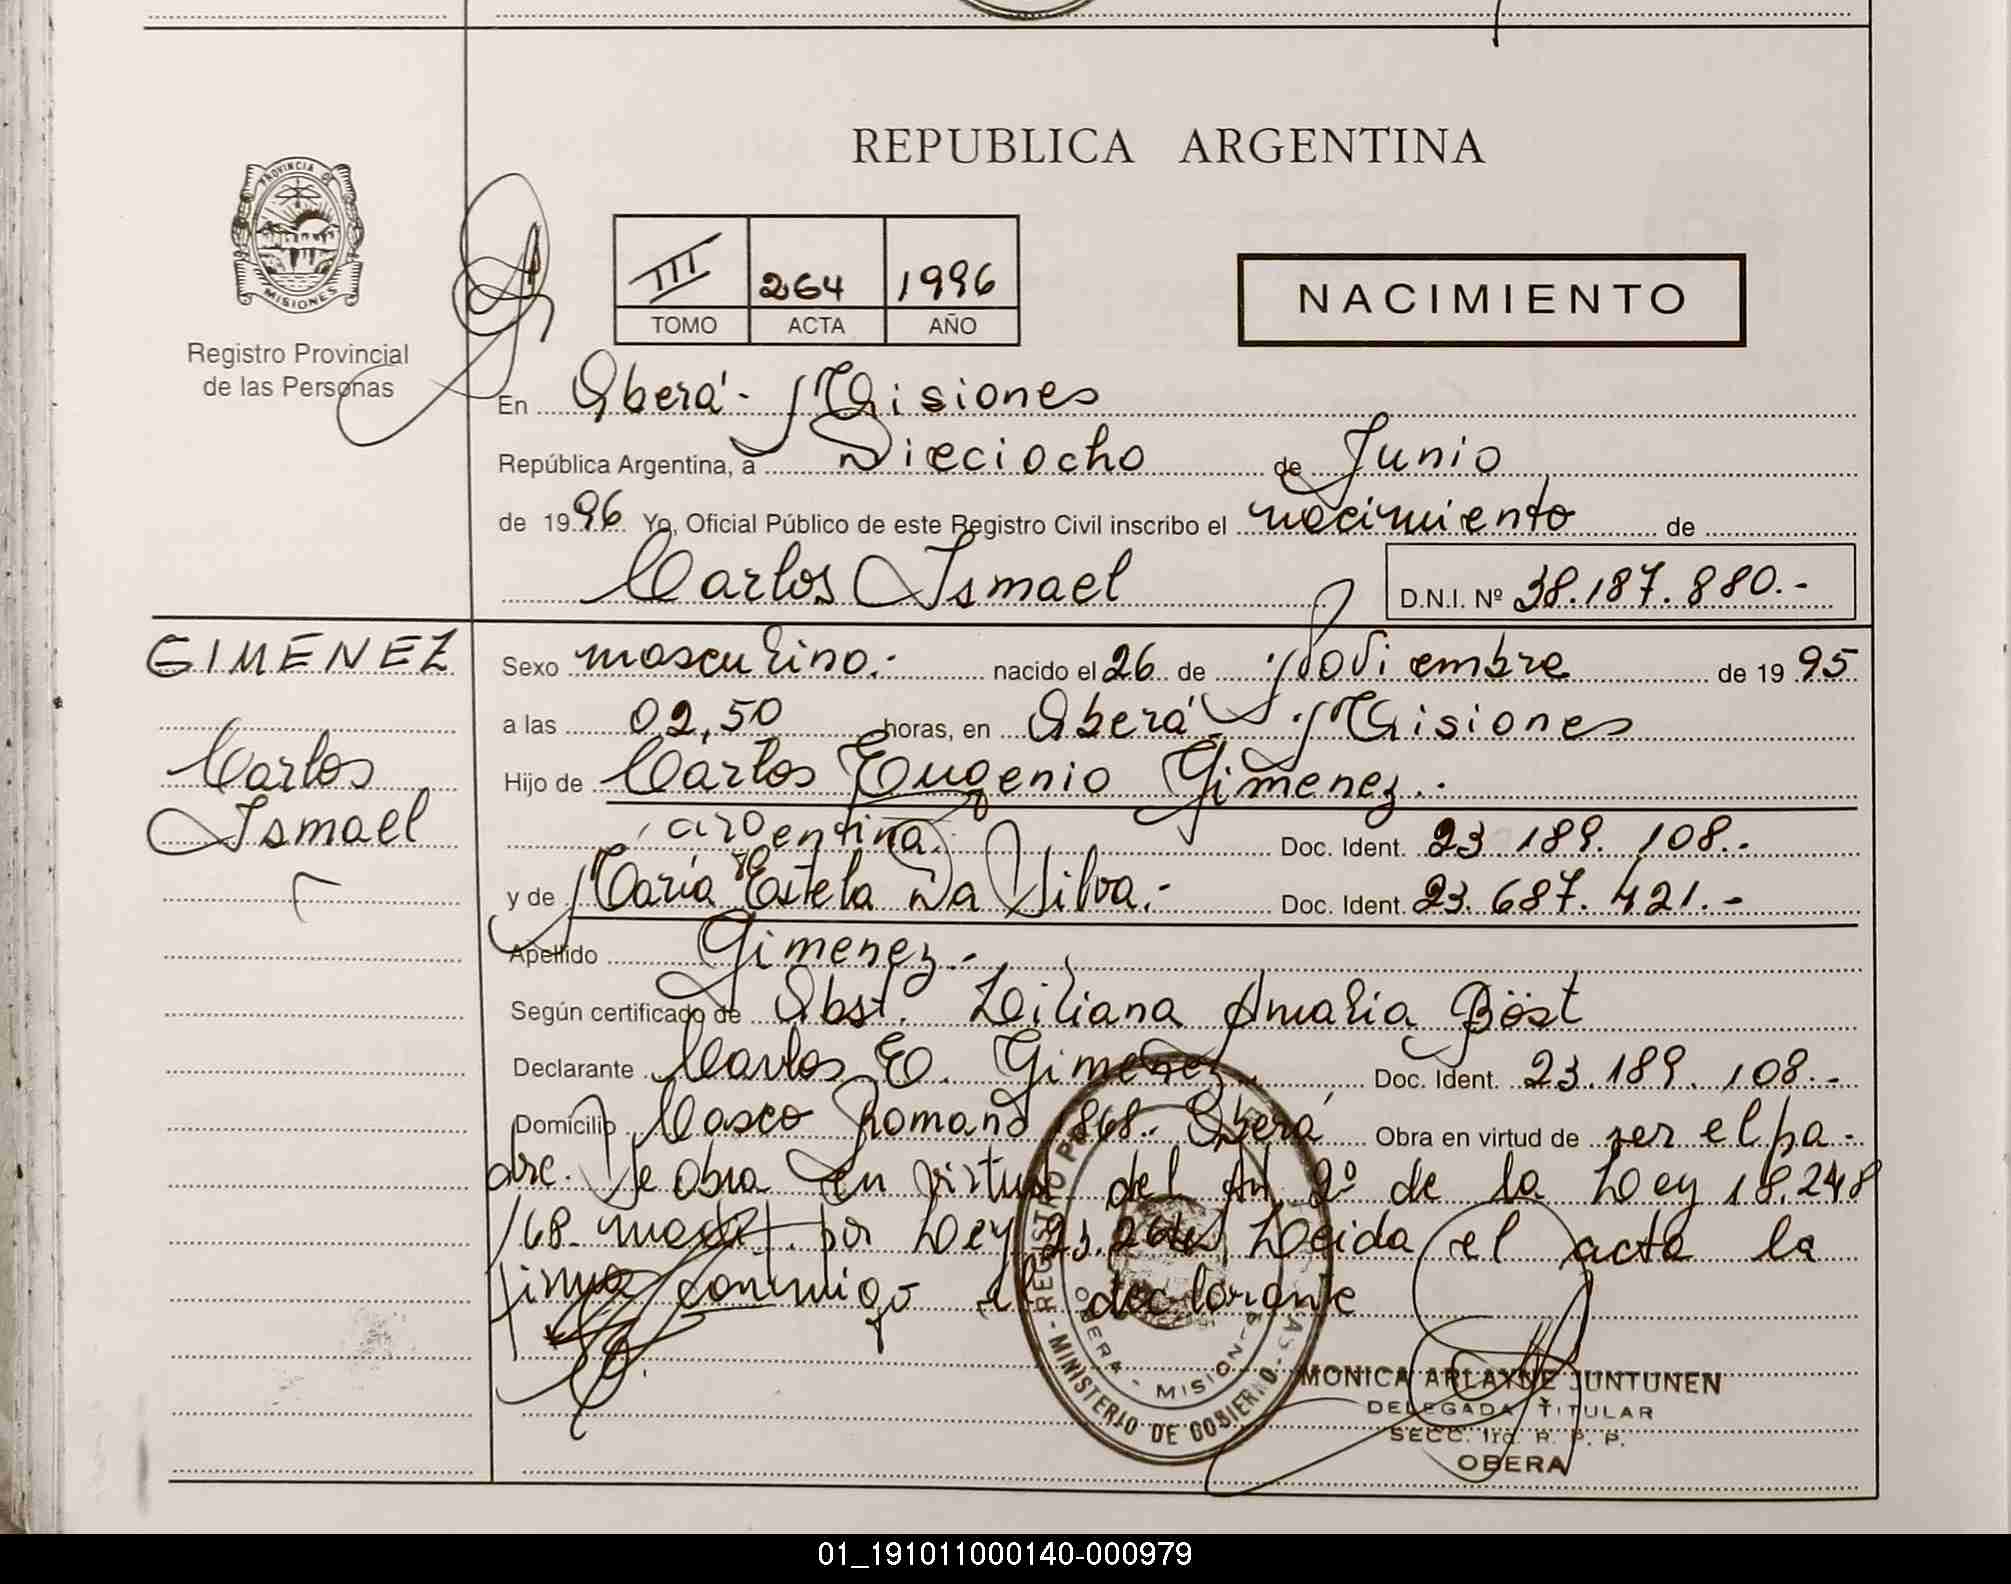 REPUBLICA ARGENTINA
PROVINCIA DE
MISIONES
Registro Provincial
de las Personas
III 264 1996
TOMO ACTA AÑO
NACIMIENTO
En Oberá - Misiones
República Argentina, a Dieciocho de Junio
de 1996 Yo, Oficial Público de este Registro Civil inscribo el nacimiento de
Carlos Ismael D.N.I. Nº 38.187.880.-
GIMENEZ
Carlos
Ismael
Sexo masculino.- nacido el 26 de Noviembre de 1995
a las 02,50 horas, en Oberá - Misiones
Hijo de Carlos Eugenio Gimenez.-
argentina. Doc. Ident. 23.189.108.-
y de María Estela Da Silva.- Doc. Ident. 23.687.421.-
Apellido Gimenez.-
Según certificado de Obst. Liliana Amalia Böst
Declarante Carlos E. Gimenez.- Doc. Ident. 23.189.108.-
Domicilio Casco Romano 868.- Oberá Obra en virtud de ser el pa-
dre. Se obra en virtud del Art. 2º de la Ley 18.248
/68 modif. por Ley Leida el acta la
firma conmigo el declarante
REGISTRO
OBERA - MISIONES
MINISTERIO DE GOBIERNO
MONICA ARLAYNE JUNTUNEN
DELEGADA TITULAR
SECC. 1ra. R. P. P.
OBERA
01_191011000140-000979